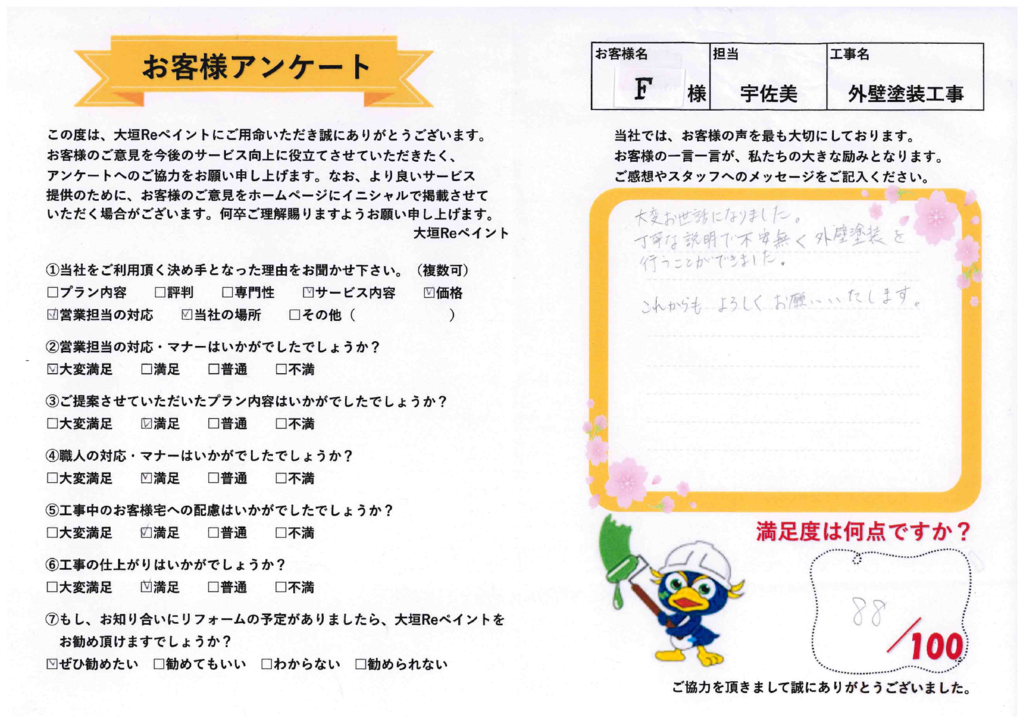 お客様アンケート
この度は、大垣Reペイントにご用命いただき誠にありがとうございます。
お客様のご意見を今後のサービス向上に役立てさせていただきたく、
アンケートへのご協力をお願い申し上げます。なお、より良いサービス
提供のために、お客様のご意見をホームページにイニシャルで掲載させて
いただく場合がございます。何卒ご理解賜りますようお願い申し上げます。
大垣Reペイント
①当社をご利用頂く決め手となった理由をお聞かせ下さい。（複数可）
□プラン内容 □評判 □専門性 ☑サービス内容 ☑価格
☑営業担当の対応 ☑当社の場所 □その他（ ）
②営業担当の対応・マナーはいかがでしたでしょうか？
☑大変満足 □満足 □普通 □不満
③ご提案させていただいたプラン内容はいかがでしたでしょうか？
□大変満足 ☑満足 □普通 □不満
④職人の対応・マナーはいかがでしたでしょうか？
□大変満足 ☑満足 □普通 □不満
⑤工事中のお客様宅への配慮はいかがでしたでしょうか？
□大変満足 ☑満足 □普通 □不満
⑥工事の仕上がりはいかがでしょうか？
□大変満足 ☑満足 □普通 □不満
⑦もし、お知り合いにリフォームの予定がありましたら、大垣Reペイントを
お勧め頂けますでしょうか？
☑ぜひ勧めたい □勧めてもいい □わからない □勧められない
お客様名 担当 工事名
F 様 宇佐美 外壁塗装工事
当社では、お客様の声を最も大切にしております。
お客様の一言一言が、私たちの大きな励みとなります。
ご感想やスタッフへのメッセージをご記入ください。
大変お世話になりました。
丁寧な説明で不安無く外壁塗装を
行うことができました。
これからもよろしくお願いいたします。
満足度は何点ですか？
88/100
ご協力を頂きまして誠にありがとうございました。